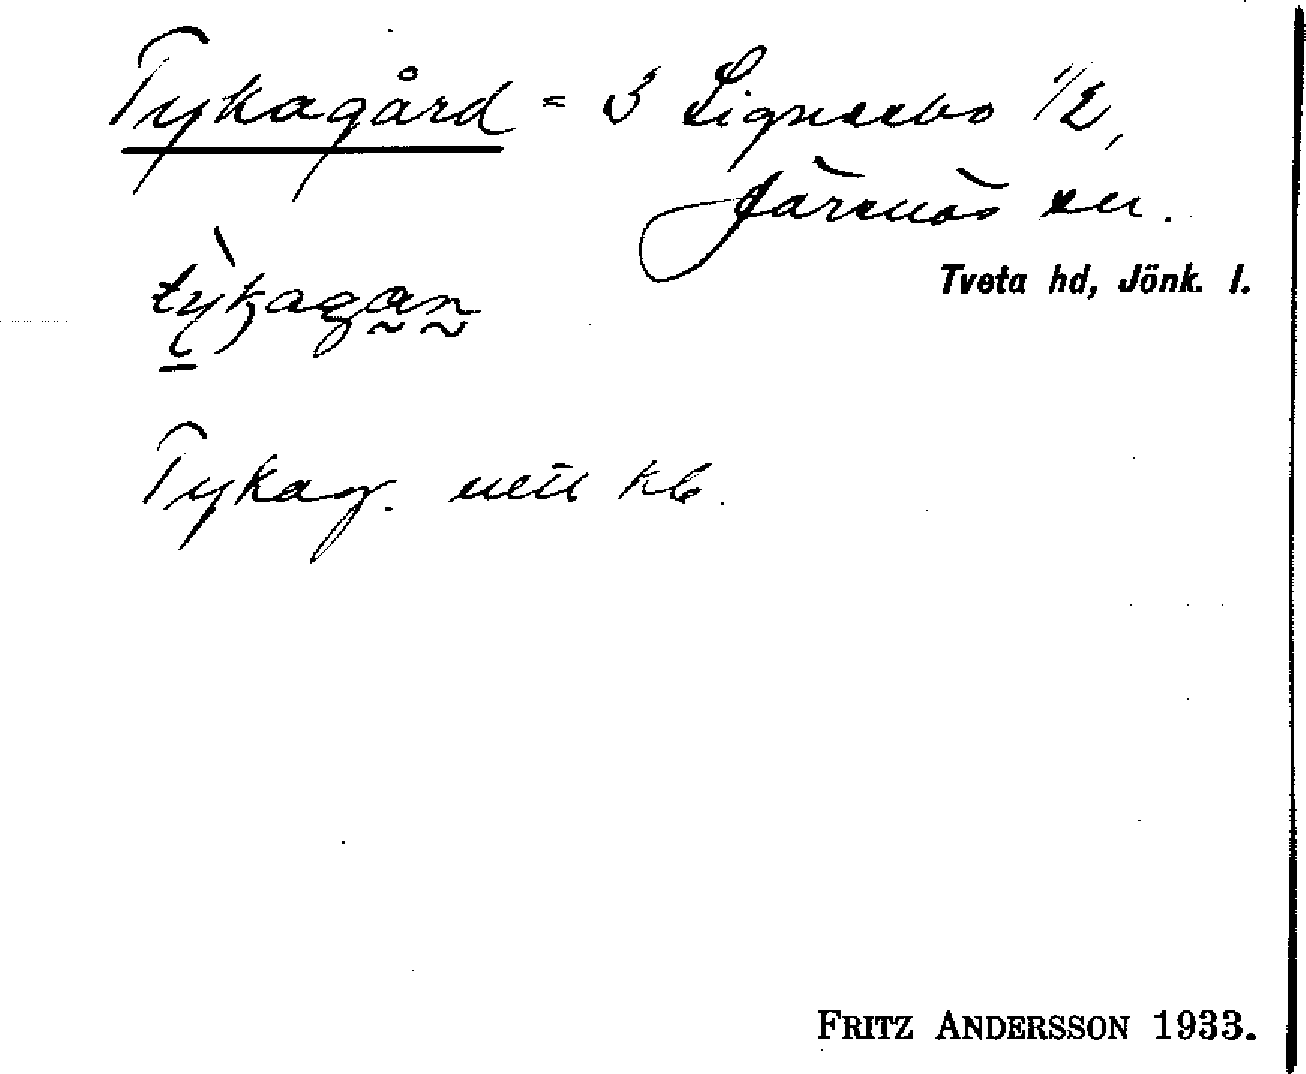 Tykagård = 3 Lignebo 1/2,
Järsnäs sn.
Tveta hd, Jönk. l.
tỳkagan
Tykag. kb.
FRITZ ANDERSSON 1933.